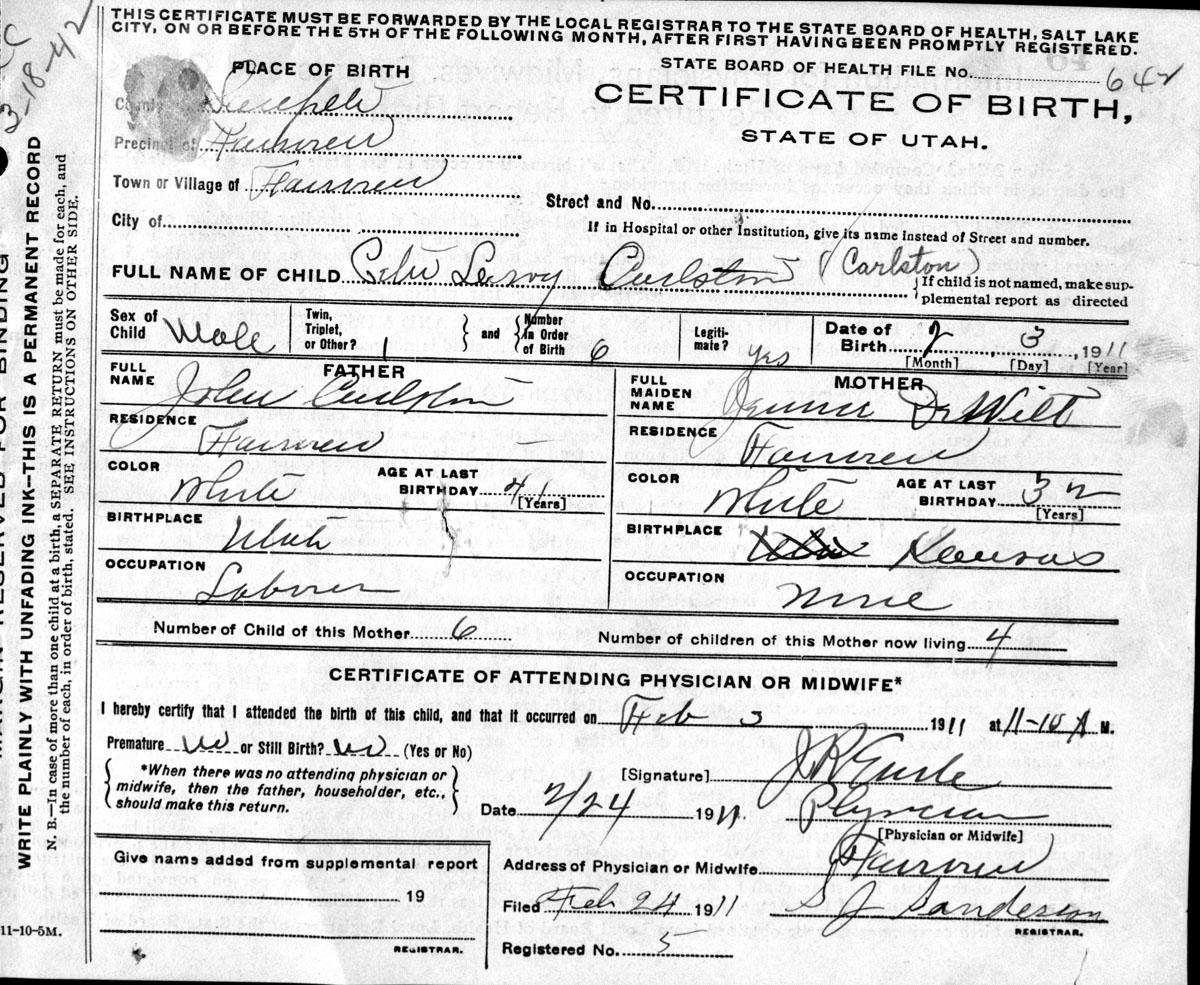 THIS CERTIFICATE MUST BE FORWARDED BY THE LOCAL REGISTRAR TO THE STATE BOARD OF HEALTH, SALT LAKE
CITY, ON OR BEFORE THE 5TH OF THE FOLLOWING MONTH, AFTER FIRST HAVING BEEN PROMPTLY REGISTERED.
3-18-42
PLACE OF BIRTH
STATE BOARD OF HEALTH FILE No. 642
CERTIFICATE OF BIRTH,
STATE OF UTAH.
County of
Precinct of Fairview
Town or Village of Fairview
Street and No.
City of
If in Hospital or other Institution, give its name instead of Street and number.
FULL NAME OF CHILD Leroy Carlston (Carlston)
If child is not named, make sup-
plemental report as directed
Sex of Child Male
Twin, Triplet, or Other? 1
and
Number in Order of Birth 6
Legiti-mate? yes
Date of Birth 2, 3, 1911
[Month] [Day] [Year]
FATHER
FULL NAME John Carlston
MOTHER
FULL MAIDEN NAME DeWitt
RESIDENCE Fairview
RESIDENCE Fairview
COLOR White
AGE AT LAST BIRTHDAY 41
[Years]
COLOR White
AGE AT LAST BIRTHDAY 32
[Years]
BIRTHPLACE Utah
BIRTHPLACE Kansas
OCCUPATION Laborer
OCCUPATION None
Number of Child of this Mother 6
Number of children of this Mother now living 4
CERTIFICATE OF ATTENDING PHYSICIAN OR MIDWIFE*
I hereby certify that I attended the birth of this child, and that it occurred on Feb 3 1911 at 11-10 A M.
Premature no or Still Birth? no (Yes or No)
*When there was no attending physician or
midwife, then the father, householder, etc.,
should make this return.
[Signature]
Date 2/24 1911 Physician
[Physician or Midwife]
Give name added from supplemental report
19
REGISTRAR.
Address of Physician or Midwife Fairview
Filed Feb 24 1911 Sanderson
REGISTRAR.
Registered No. 5
11-10-5M.
WRITE PLAINLY WITH UNFADING INK-THIS IS A PERMANENT RECORD
N. B.—In case of more than one child at a birth, a SEPARATE RETURN must be made for each, and
the number of each, in order of birth, stated. SEE INSTRUCTIONS ON OTHER SIDE.